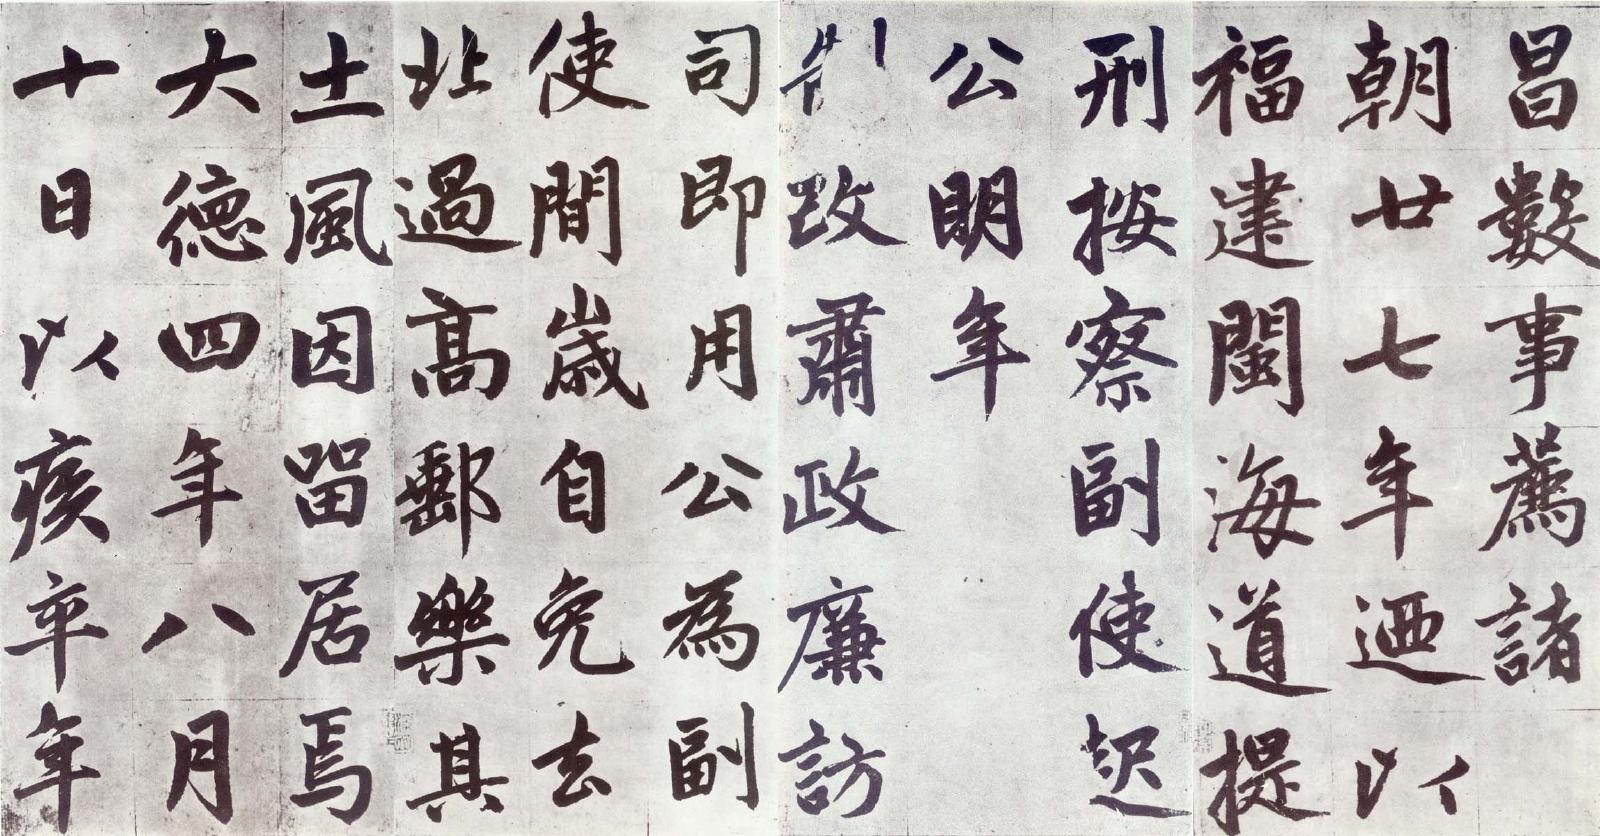 昌數事薦諸
朝廿七年迺以
福建閩海道提
刑按察副使起
公明年
制改肅政廉訪
司即用公為副
使間歲自免去
北過高郵樂其
土風因留居焉
大德四年八月
十日以疾卒年